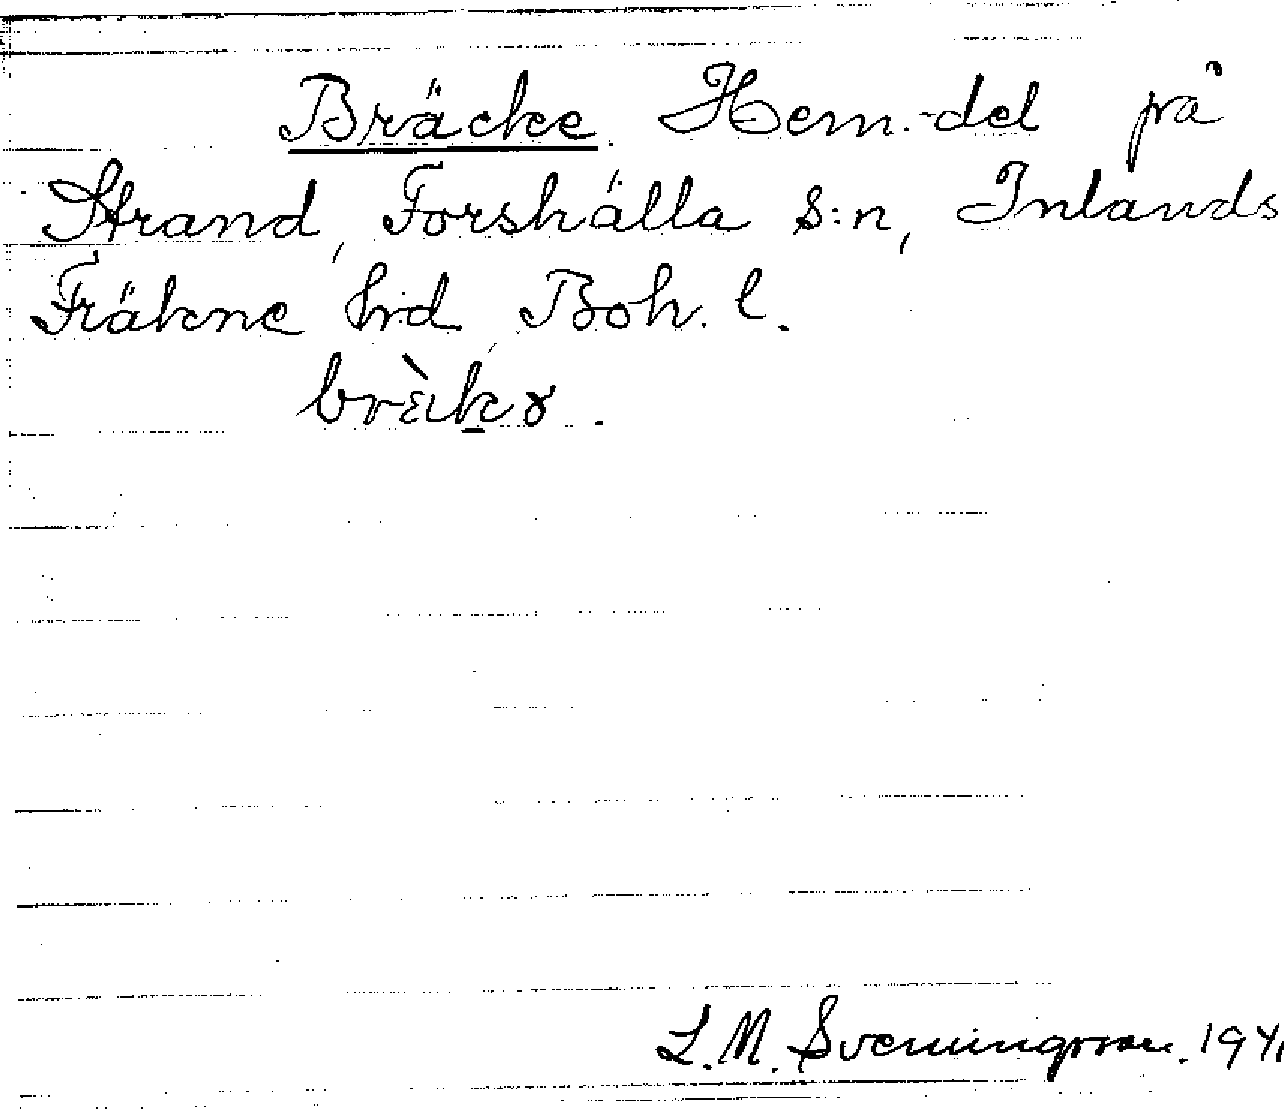 Bräcke. Hem.-del på
Strand, Forshälla s:n, Inlands
Fräkne hrd, Boh. l.
brὲkɤ.
L. M. Svenningsson. 1941